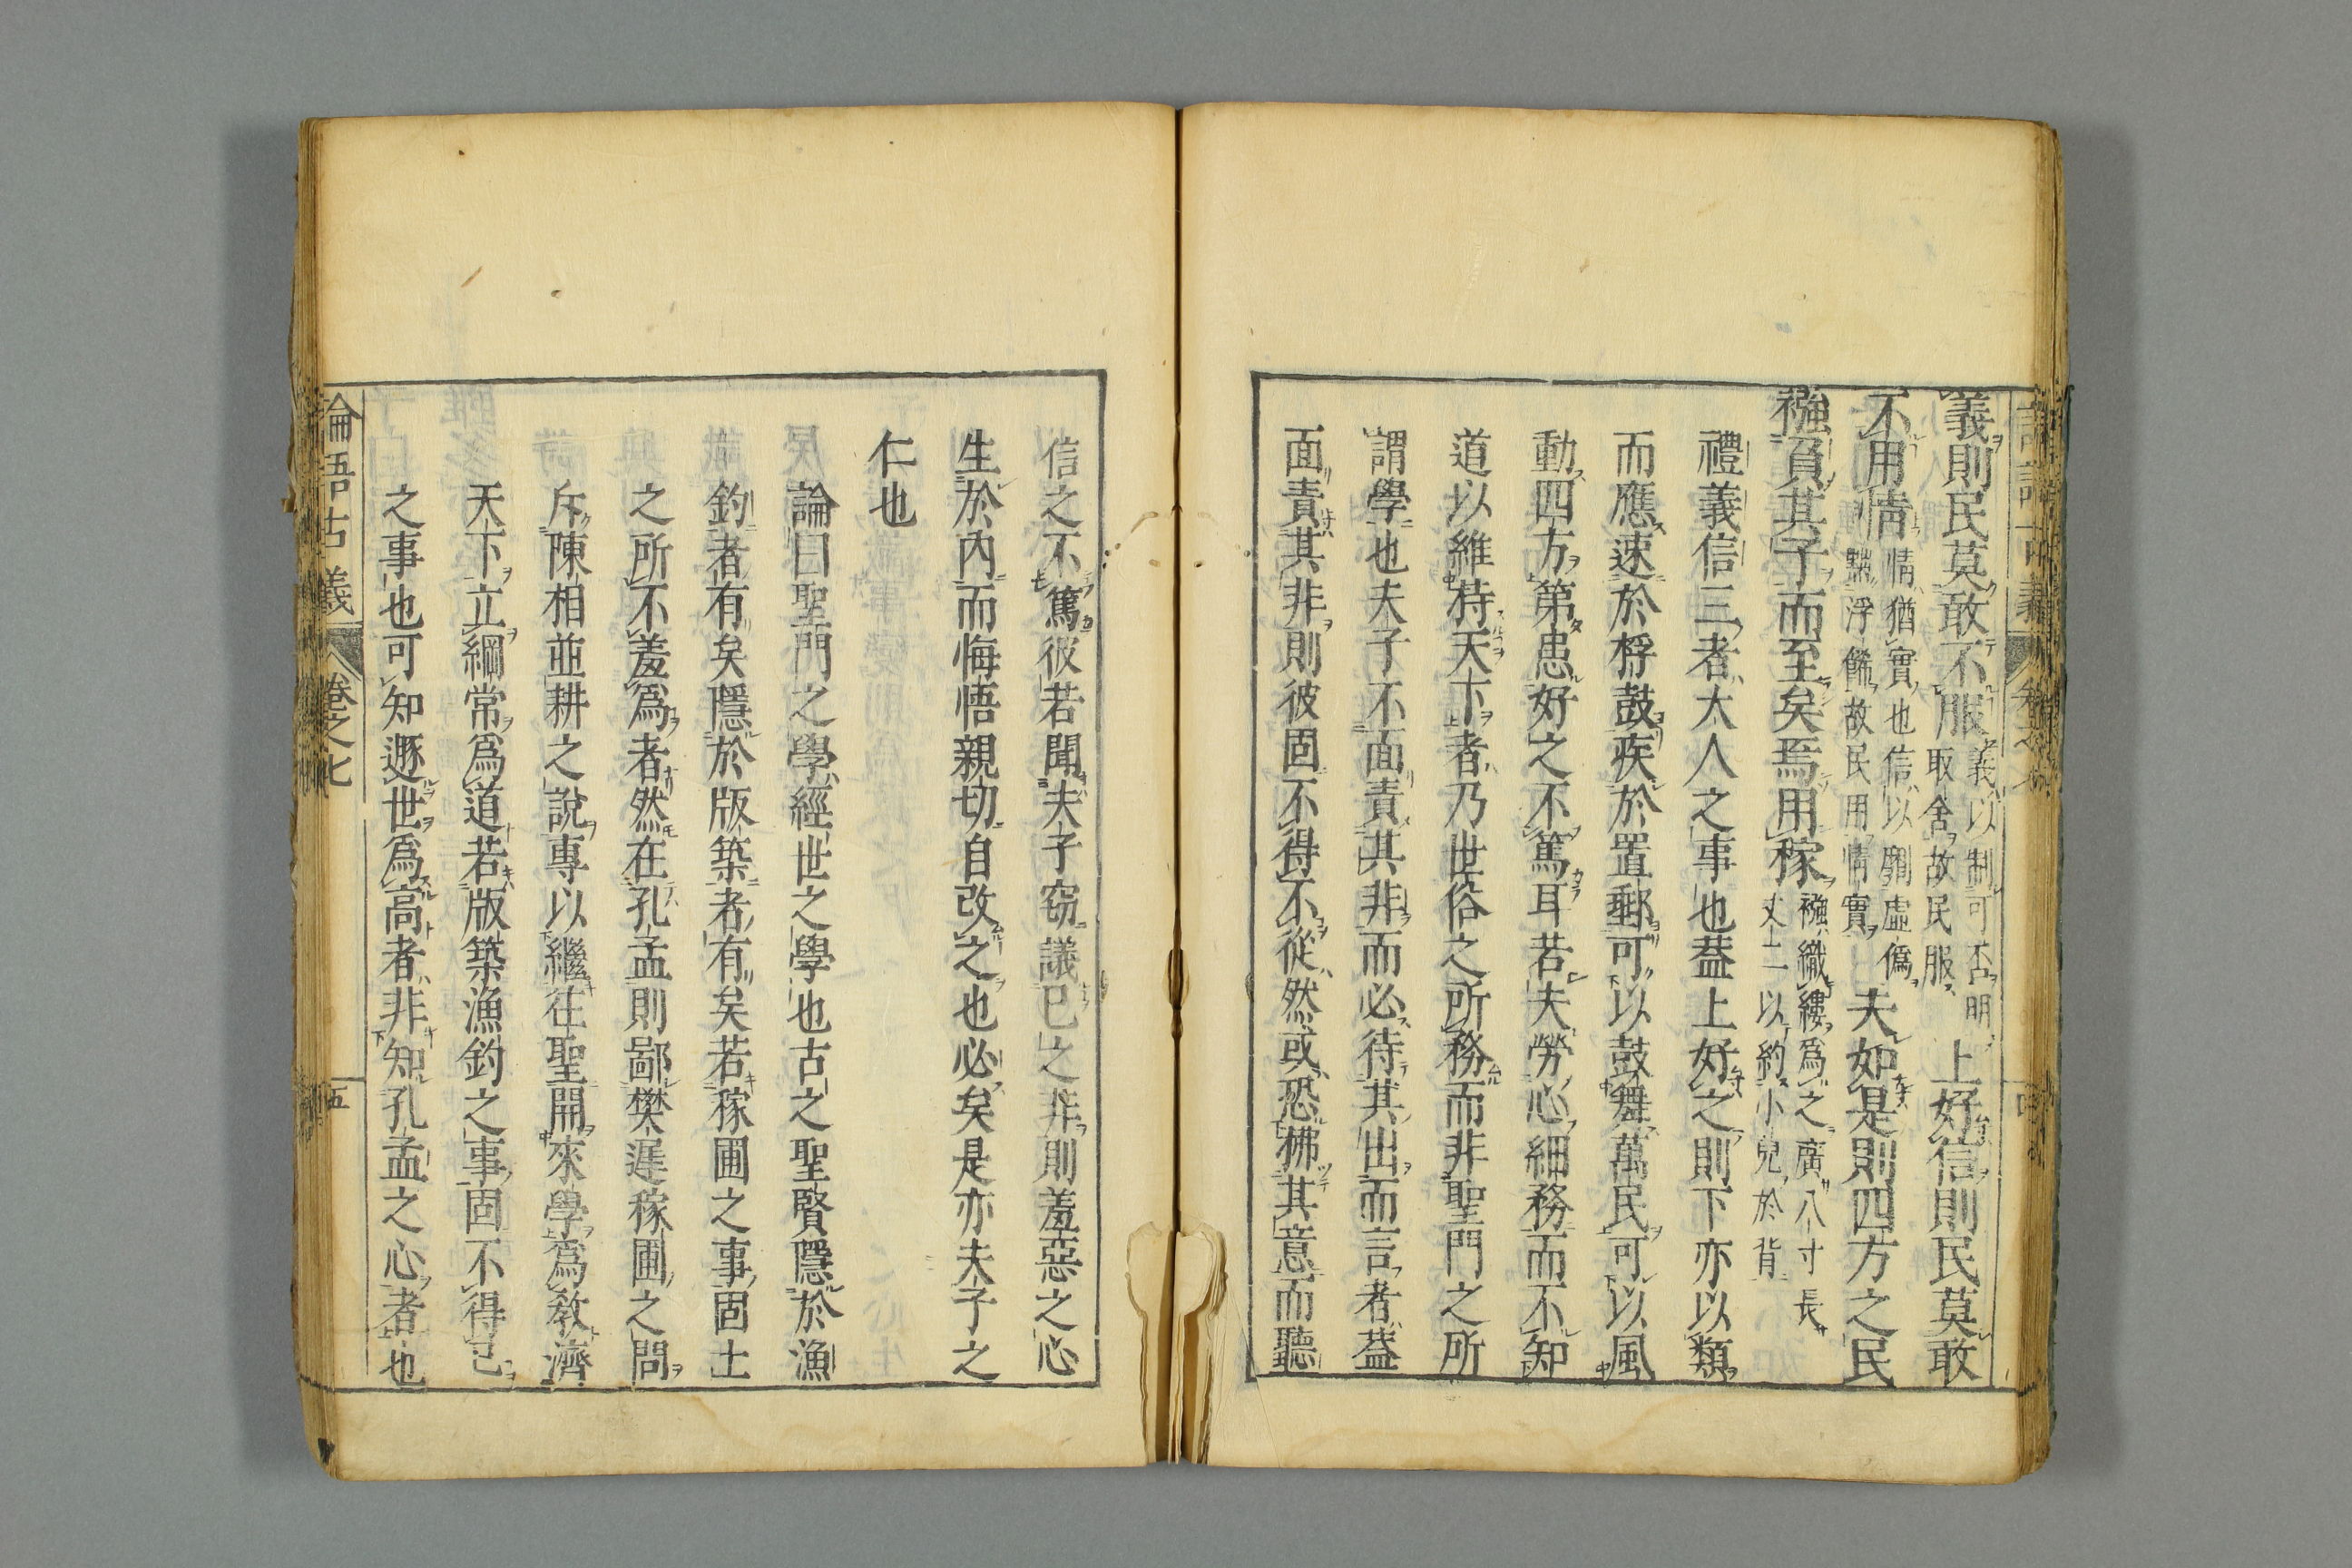 義則民莫敢不服義以制可否明取舍故民服上好信則民莫敢
不用情情猶實也信以關虛僞黜浮餙故民用情實夫如是則四方之民
襁負其子而至矣焉用稼襁織縷爲之廣八寸長丈二以約小兒於背
禮義信三者大人之事也葢上好之則下亦以類
而應速於桴鼓疾於置郵可以鼓舞萬民可以風
動四方第患好之不篤耳若夫勞心細務而不知
道以維持天下者乃世俗之所務而非聖門之所
謂學也夫子不面責其非而必待其出而言者葢
面責其非則彼固不得不從然或恐拂其意而聽
信之不篤彼若聞夫子窃議已之非則羞惡之心
生於內而悔悟親切自改之也必矣是亦夫子之
仁也
論曰聖門之學經世之學也古之聖賢隱於漁
釣者有矣隱於版築者有矣若稼圃之事固士
之所不羞爲者然在孔孟則鄙樊遲稼圃之問
斥陳相並耕之說專以繼往聖開來學爲教濟
天下立綱常爲道若版築漁釣之事固不得已
之事也可知遯世爲高者非知孔孟之心者也
論語古義 卷之七 五